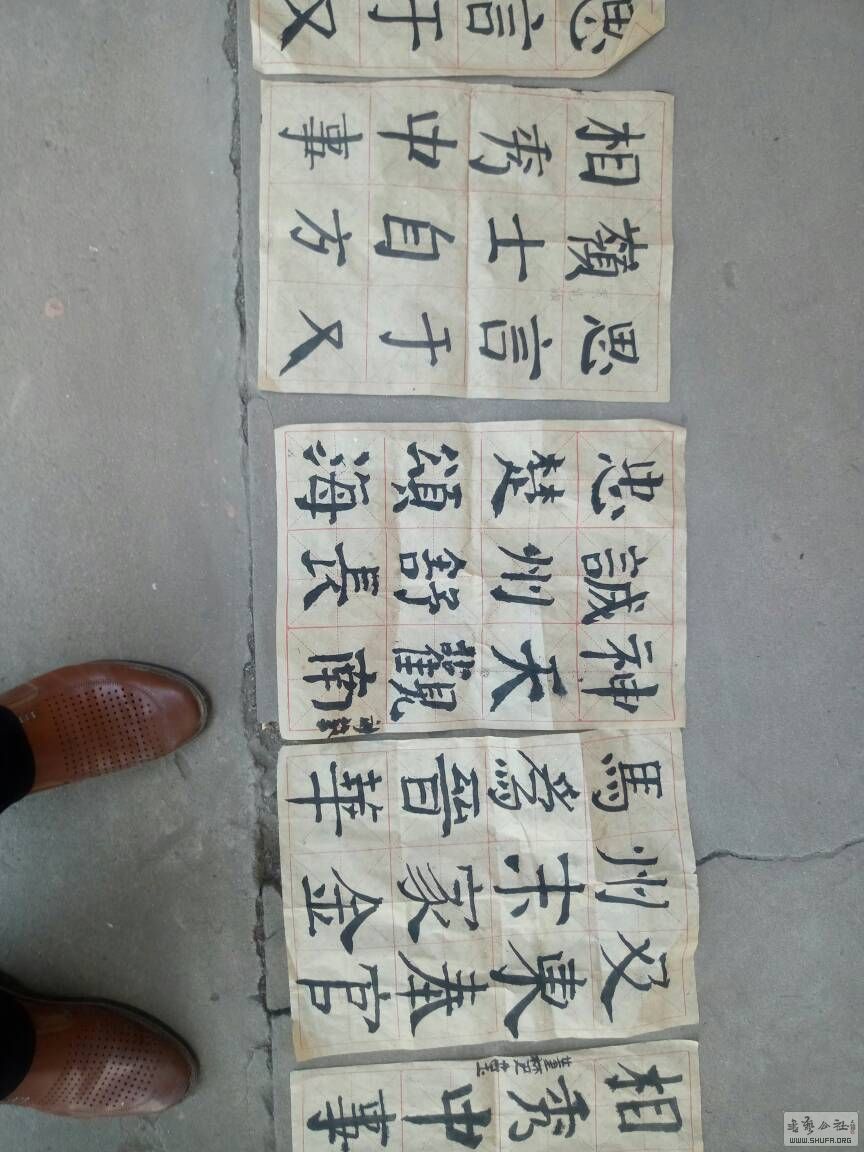 思
言
于
又
相思
秀士言
中自于
事方又
忠誠神
楚州天
舒觀
海長南
馬州
爲東
晉家奉
華金官
相
秀
中
事
书艺公社
WWW.SHUFA.ORG